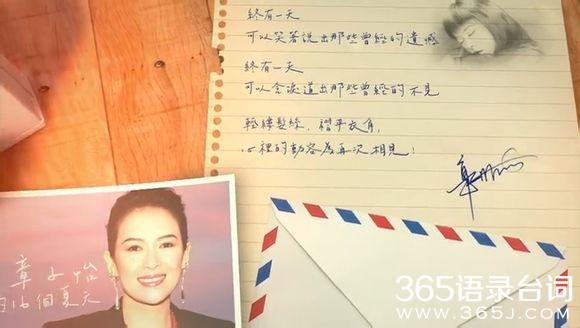 終有一天
可以笑著說出那些曾經的遺憾
終有一天
可以含淚道出那些曾經的不見
輕縷髮絲，褶平衣角，
心裡的動容為再次相見！
章子怡
的16個夏天
365语录台词
www.365J.COM